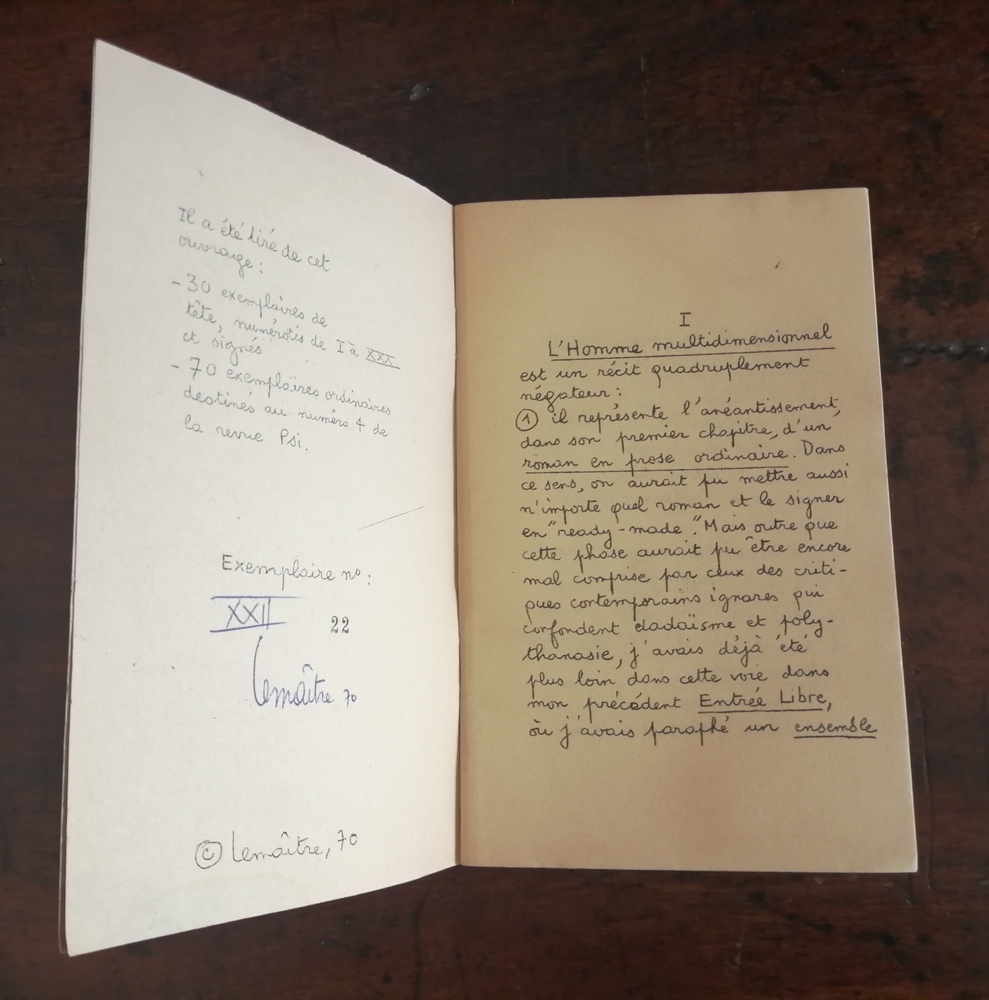 Il a été tiré de cet
ouvrage :
- 30 exemplaires de
tête, numérotés de I à XXX
et signés
- 70 exemplaires ordinaires
destinés au numéro 4 de
la revue Psi.
Exemplaire nº :
XXII 22
Lemaître 70
© Lemaître, 70
I
L'Homme multidimensionnel
est un récit quadruplement
négateur :
① il représente l'anéantissement,
dans son premier chapitre, d'un
roman en prose ordinaire. Dans
ce sens, on aurait pu mettre aussi
n'importe quel roman et le signer
en "ready-made". Mais outre que
cette phase aurait pu être encore
mal comprise par ceux des criti-
ques contemporains ignares qui
confondent dadaïsme et poly-
thanasie, j'avais déjà été
plus loin dans cette voie dans
mon précédent Entrée Libre,
où j'avais paraphé un ensemble